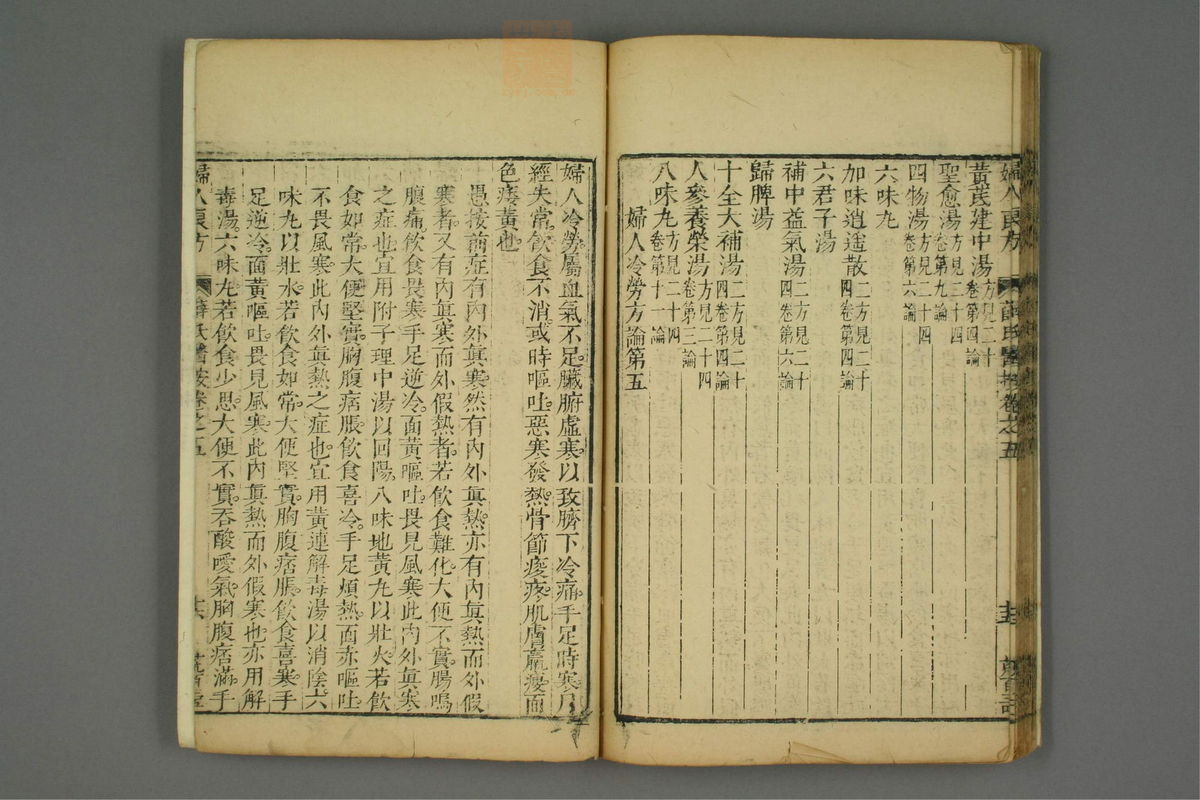 婦人良方 薛氏醫按卷之五
黃芪建中湯方見二十四卷第四論
聖愈湯方見三四卷第九論
四物湯方見二十四卷第六論
六味丸
加味逍遙散二方見二十四卷第四論
六君子湯
補中益氣湯二方見二十四卷第六論
歸脾湯
十全大補湯二方見二十四卷第四論
人參養榮湯方見二十四卷第三論
八味丸方見二十四卷第十一論
婦人冷勞方論第五
婦人冷勞屬血氣不足臟腑虛寒以致臍下冷痛手足時寒月
經失常飲食不消或時嘔吐惡寒發熱骨節痠疼肌膚羸瘦面
色痿黃也
愚按前症有內外眞寒然有內外眞熱亦有內眞熱而外假
寒者又有內眞寒而外假熱者若飲食難化大便不實腸鳴
腹痛飲食畏寒手足逆冷面黃嘔吐畏見風寒此內外眞寒
之症也宜用附子理中湯以回陽八味地黃丸以壯火若飲
食如常大便堅實胸腹痞脹飲食喜冷手足煩熱面赤嘔吐
不畏風寒此內外眞熱之症也宜用黃連解毒湯以消陰六
味丸以壯水若飲食如常大便堅實胸腹痞脹飲食喜寒手
足逆冷面黃嘔吐畏見風寒此內眞熱而外假寒也亦用解
毒湯六味丸若飲食少思大便不實吞酸噯氣胸腹痞滿手
婦人良方 薛氏醫按卷之五 十六